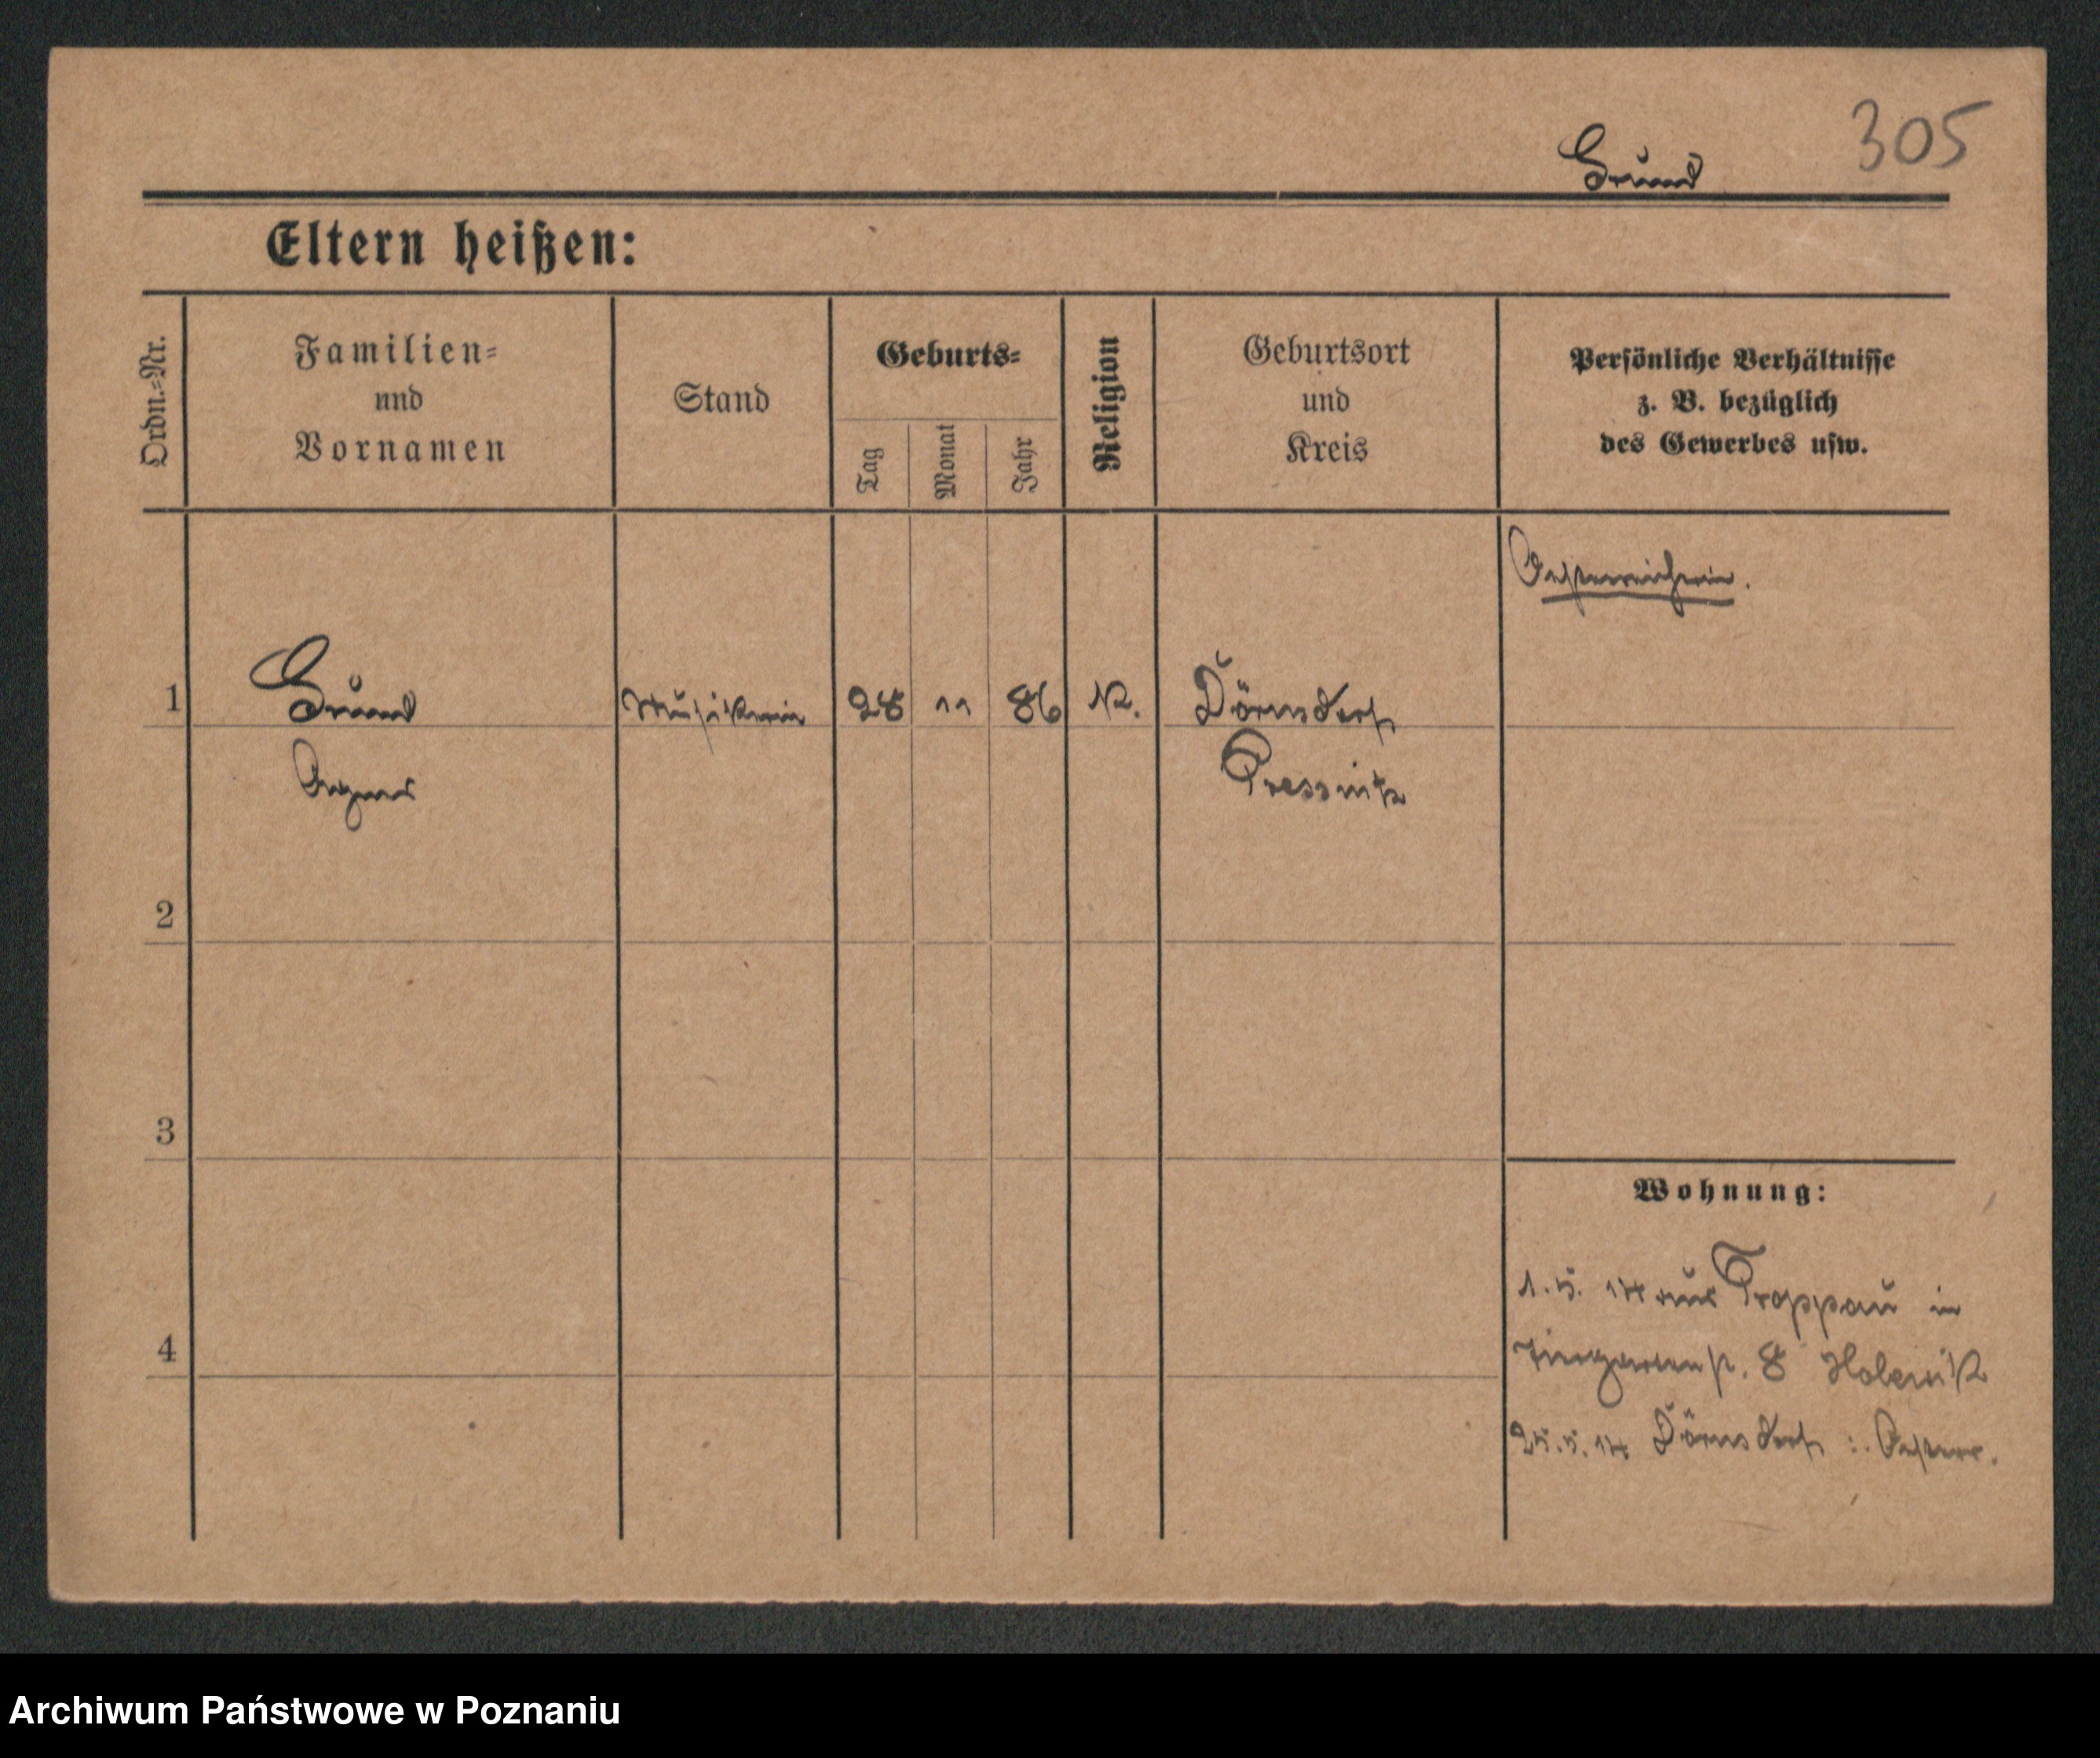 305
Grund
Eltern heißen:
Ordn.=Nr.
Familien=
und
Vornamen
Stand
Geburts=
Tag
Monat
Jahr
Religion
Geburtsort
und
Kreis
Persönliche Verhältnisse
z. B. bezüglich
des Gewerbes usw.
Oesterreicherin.
1 Grund Musikerin 28 11 86 K. Dörnsdorf
Agnes Pressnitz
2
3
Wohnung:
1. 5. 14 aus Troppau in
Tiergartenstr. 8
4
25. 5. 14 Dörnsdorf i. Oesterr.
Archiwum Państwowe w Poznaniu